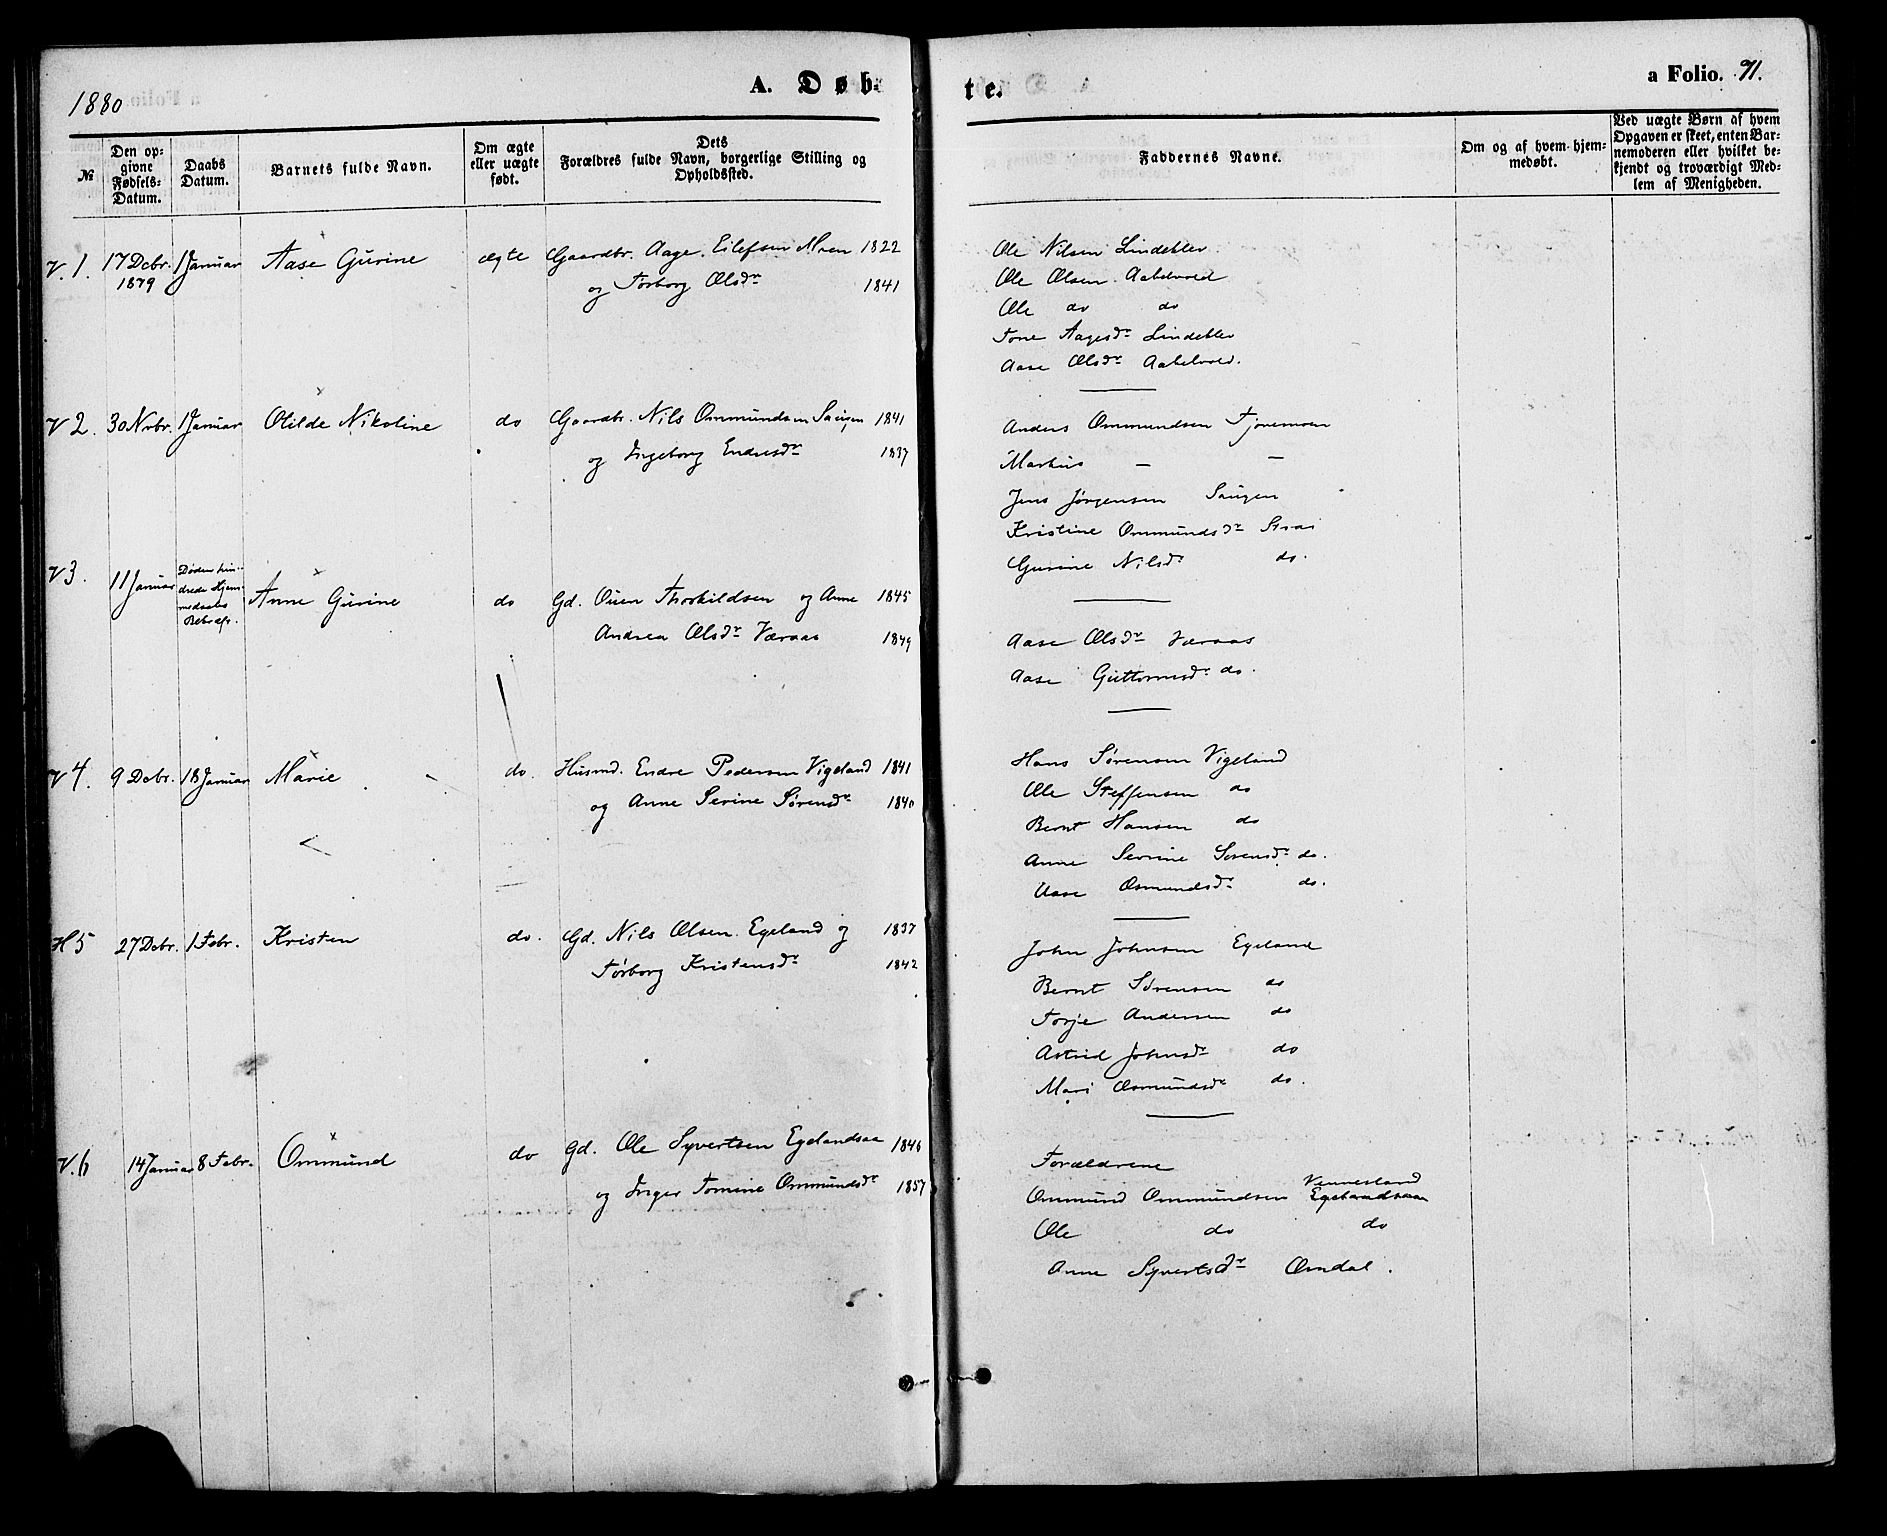 1880
A. Døb-
te.
a Folio. 91.
№
Den op-
givne
Fødsels-
Datum.
Daabs
Datum.
Barnets fulde Navn.
Om ægte
eller uægte
født.
Dets
Forældres fulde Navn, borgerlige Stilling og
Opholdssted.
Faddernes Navne.
Om og af hvem hjem-
medøbt.
Ved uægte Børn af hvem
Opgaven er skeet, enten Bar-
nemoderen eller hvilket be-
kjendt og troværdigt Med-
lem af Menigheden.
V. 1. 17 Dcbr. 1 Januar Aase Gurine ægte Gaardbr. Aage Eilefsen Moen 1822
1879 og Torborg Olsdr 1841
Ole Nilsen Lindeklev
Ole Olsen
Ole do do
Tone Aagesdr Lindeklev
Aase Olsdr
V 2. 30 Nvbr. 1 Januar Otilde Nikoline do Gaardbr. Nils Ommundsen Saugen 1841
og Ingeborg Endresdr 1837
Anders Ommundsen
Markus — —
Jens Jørgensen Saugen
Kristine Ommundsdr
Gurine Nilsdr do.
V 3. 11 Januar Døden hin-
drede Hjem-
medaabs
Bekræf.
Anne Gurine do Gd. Ouen Thorkildsen og Anne 1845
Andrea Olsdr Væraas 1849
Aase Olsdr Væraas
Aase Guttormsdr do.
V 4. 9 Dcbr. 18 Januar Marie do. Husmd. Endre Pedersen Vigeland 1841
og Anne Serine Sørensdr 1840
Hans Sørensen Vigeland
Ole Steffensen do
Bernt Hansen do
Anne Serine Sorensdr do.
Aase Osmundsdr do.
H 5 27 Dcbr. 1 Febr. Kristen do. Gd. Nils Olsen Egeland og 1837
Torborg Kristensdr 1842
John Johnsen Egeland
Bernt Sørensen do
Torje Andersen do
Astrid Johnsdr do
Mari Osmundsdr do.
V. 6 14 Januar 8 Febr. Ommund do Gd. Ole Syvertsen Egelandsaa 1846
og Inger Tomine Ommundsdr 1857
Forældrene
Ommund Ommundsen Vennesland
Egelandsaa
Ole do do
Anne Syvertsdr Omdal.